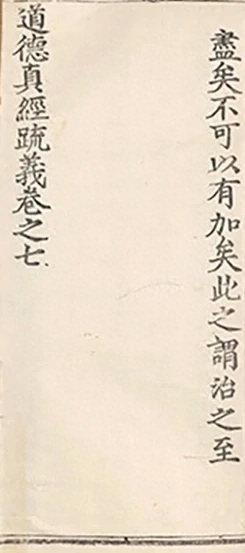 盡矣不可以有加矣此之謂治之至
道德真經疏義卷之七